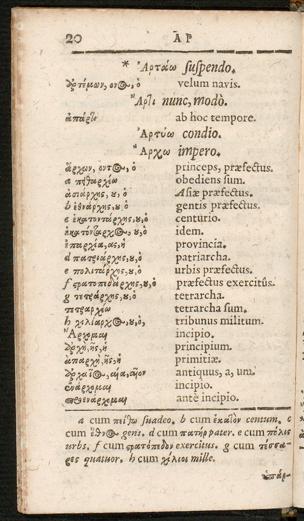 20 ΑΡ
* Ἀρτάω suspendo.
ἀρτέμων, οντος, ὁ velum navis.
Ἄρτι nunc, modò.
ἀπάρτι ab hoc tempore.
Ἀρτύω condio.
Ἄρχω impero.
ἄρχων, οντος, ὁ princeps, præfectus.
a πειθαρχέω obediens sum.
ἀσιάρχης, ου, ὁ Asiæ præfectus.
b ἐθνάρχης, ου, ὁ gentis præfectus.
c ἑκατοντάρχης, ου, ὁ centurio.
ἑκατόνταρχος, ου, ὁ idem.
ἐπαρχία, ας, ἡ provincia.
d πατριάρχης, ου, ὁ patriarcha.
e πολιτάρχης, ου, ὁ urbis præfectus.
f στρατοπεδάρχης, ου, ὁ præfectus exercitûs.
g τετράρχης, ου, ὁ tetrarcha.
τετραρχέω tetrarcha sum.
h χιλίαρχος, ου, ὁ, tribunus militum.
Ἄρχομαι incipio.
ἀρχή, ῆς, ἡ principium.
ἀπαρχή, ῆς, ἡ primitiæ.
ἀρχαῖος, αία, αῖον antiquus, a, um.
ἐνάρχομαι incipio.
προενάρχομαι antè incipio.
a cum πείθω suadeo. b cum ἑκατὸν centum. c
cum ἔθνος gens. d cum πατὴρ pater. e cum πόλις
urbs. f cum στρατόπεδον exercitus. g cum τέσσα-
ρες quatuor. h cum χίλιοι mille.
ὑπάρ-